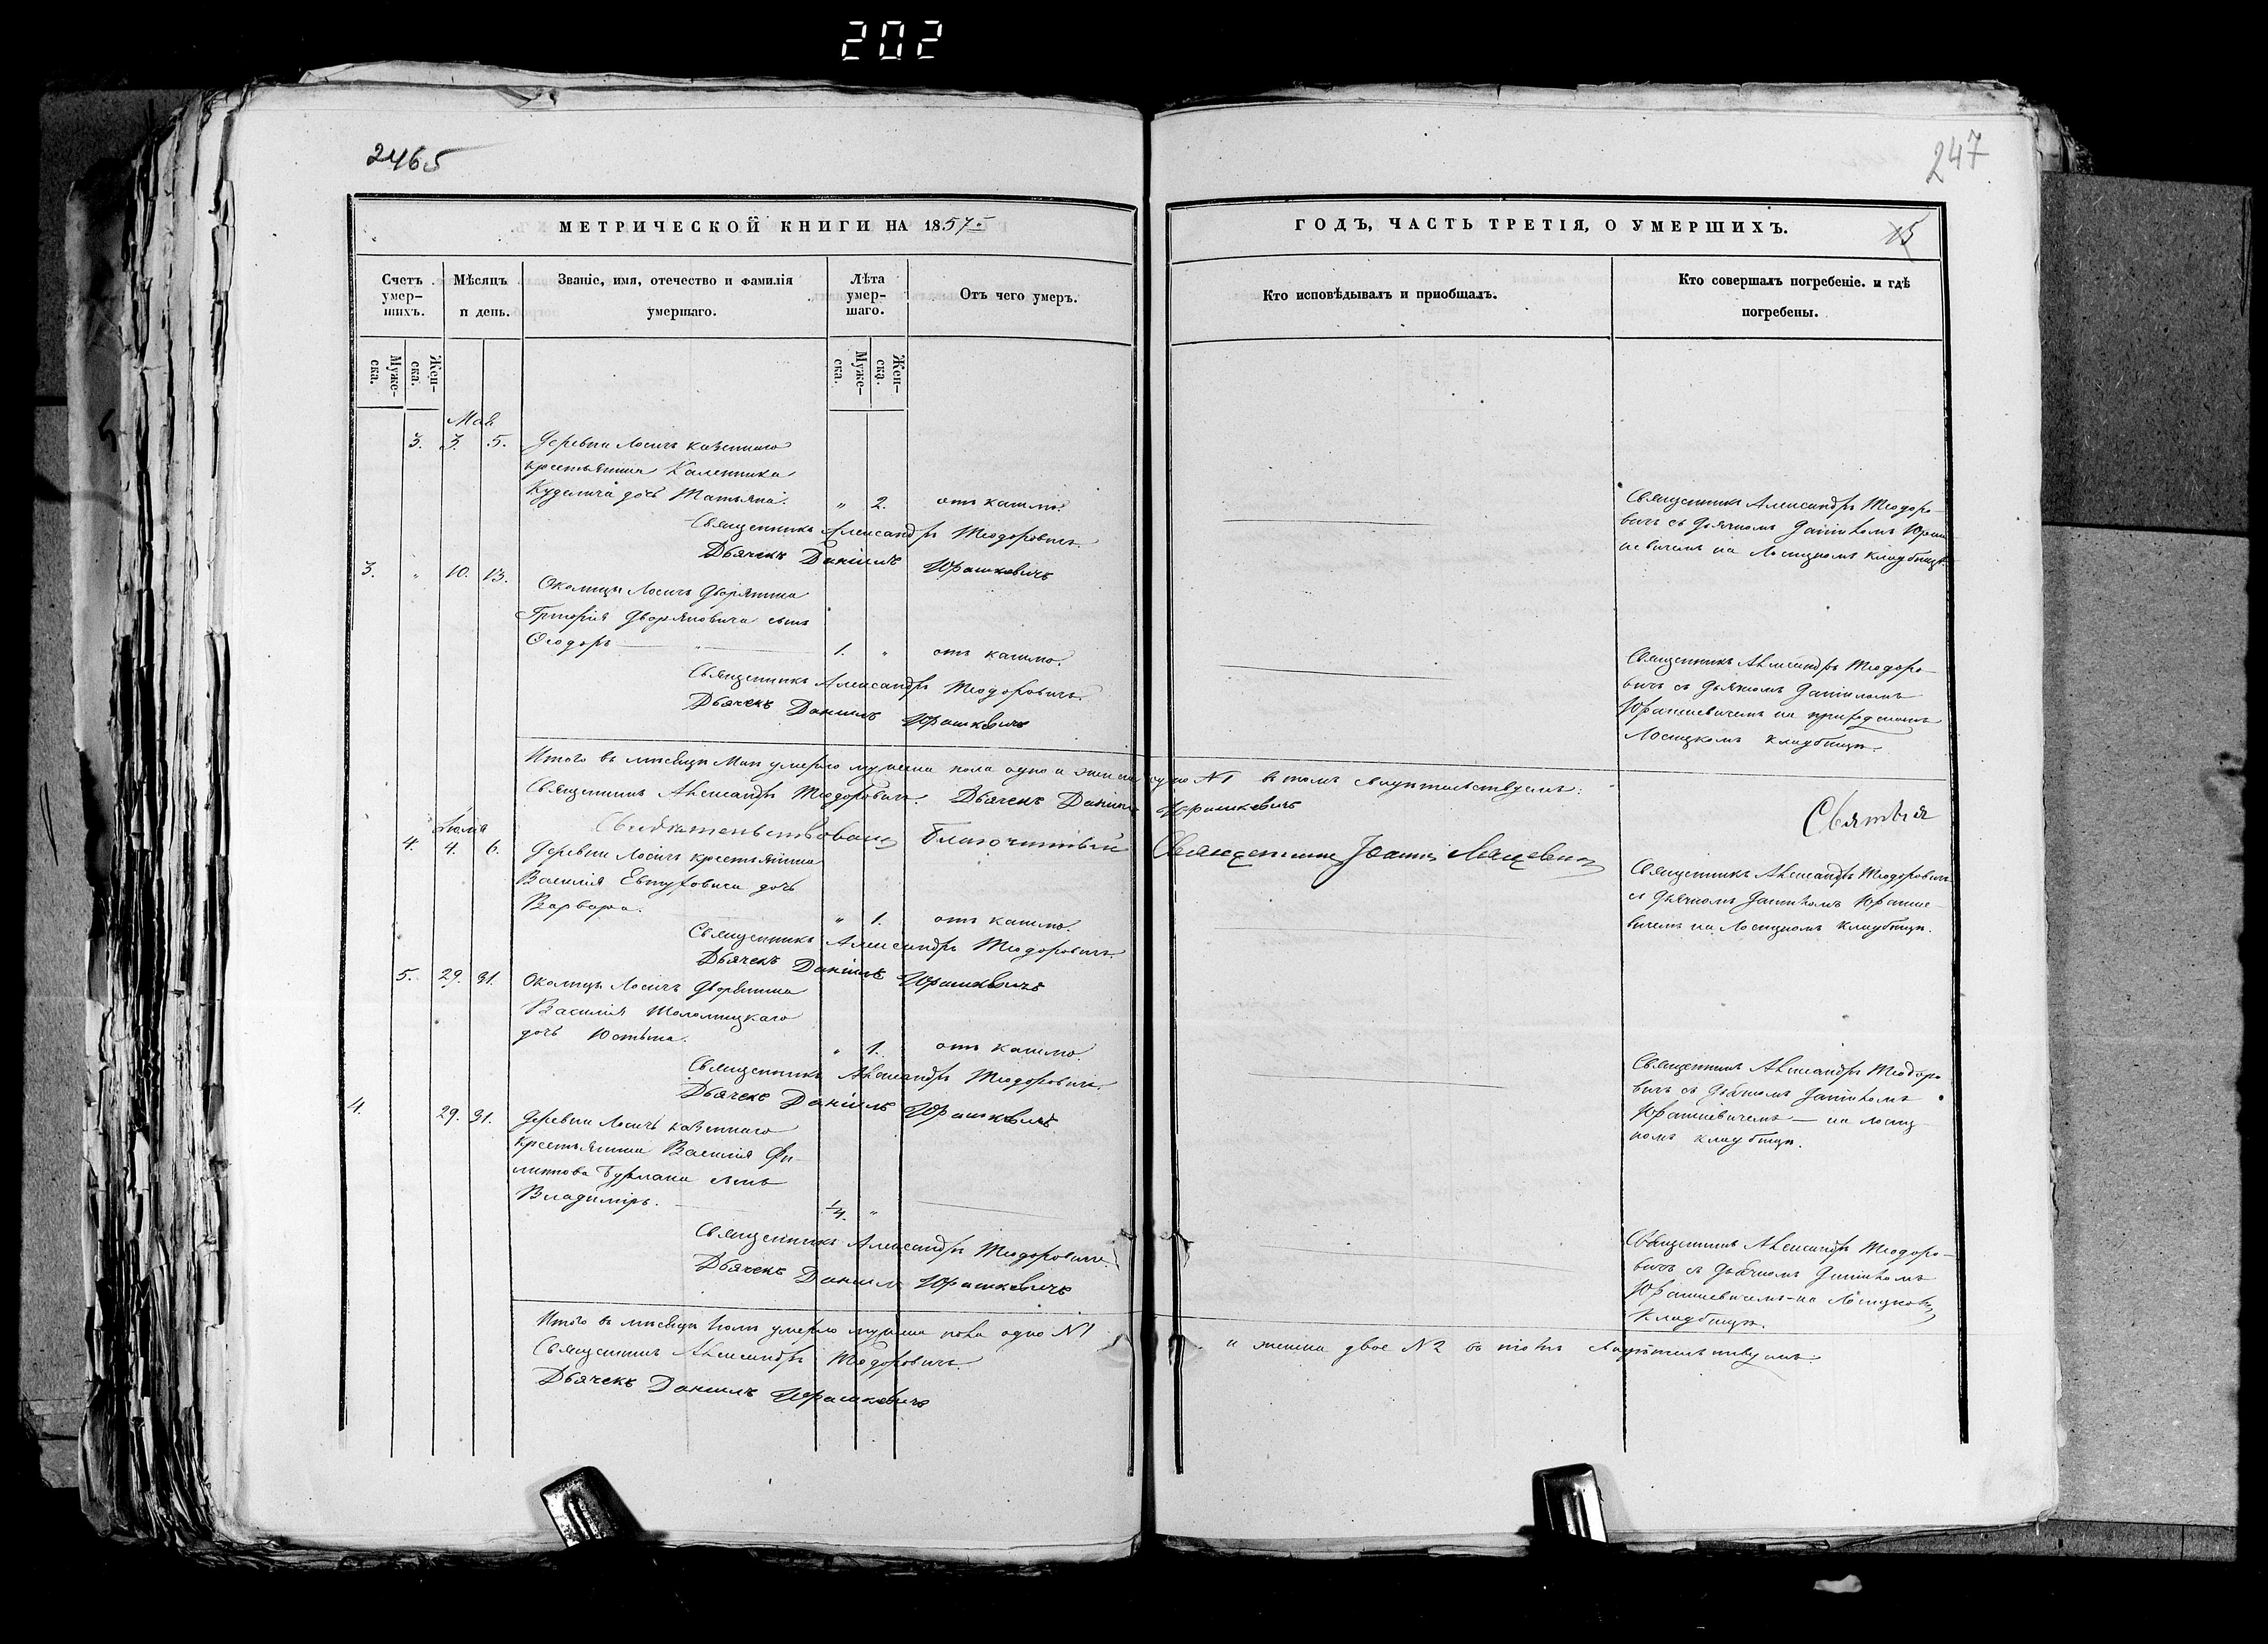 202
2465
247
МЕТРИЧЕСКОЙ КНИГИ НА 1857
ГОДЪ, ЧАСТЬ ТРЕТІЯ, О УМЕРШИХЪ.
15
Счетъ умер-шихъ.
Мѣсяцъ и день.
Званіе, имя, отечество и фамилія умершаго.
Лѣта умер-шаго.
Отъ чего умеръ.
Кто исповѣдывалъ и приобщалъ.
Кто совершалъ погребеніе. и гдѣ погребены.
Муже-ска.
Жен-ска.
Муже-ска.
Жен-ска.
Мая
3. 3. 5. Деревни Лосичъ казеннаго
крестьянина Каленника
дочь Татьяна. " 2. отъ кашлю.
Священникъ Александръ Теодоровичъ
Дьячекъ Даніилъ Юрашкевичъ
Священникъ Александръ Теодоро-
вичъ съ дьячкомъ Даніиломъ Юраш
кевичемъ на Лосицкомъ кладбищѣ.
3. " 10. 13. Околицы Лосичъ дворянина
Григорія Дворяновича сынъ
Ѳеодоръ 1. " отъ кашлю.
Священникъ Александръ Теодоровичъ.
Дьячекъ Даниилъ Юрашкевичъ
Священникъ Александръ Теодоро-
вичъ съ дьячкомъ Даніиломъ
Юрашкевичемъ на приходскомъ
Лосицкомъ кладбищѣ.
Итого въ мѣсяцѣ Маѣ умерло мужеска пола одно и женска одно №1 въ томъ свидѣтельствуемъ:
Священникъ Александръ Теодоровичъ. Дьячекъ Даніилъ Юрашкевичъ
Благочинный Священникъ Іоаннъ
Іюля
4. 4. 6. Деревни Лосичъ крестьянина
Василія дочь
Варвара. " 1. отъ кашлю.
Священникъ Александръ Теодоровичъ.
Дьячекъ Даніилъ Юрашкевичъ
Священникъ Александръ Теодоровичъ
съ дьячкомъ Даніиломъ Юрашке-
вичемъ на Лосицкомъ кладбищѣ.
5. 29. 31. Околицы Лосичъ дворянина
Василія
дочь " 1. отъ кашлю.
Священникъ Александръ Теодоровичъ.
Дьячекъ Даніилъ Юрашкевичъ
Священникъ Александръ Теодоро-
вичъ съ дьячкомъ Даніиломъ
Юрашкевичемъ — на Лосиц-
комъ кладбищѣ.
4. 29. 31. Деревни Лосичъ казеннаго
крестьянина Василія Фи-
липпова сынъ
Владиміръ. 1/4. "
Священникъ Александръ Теодоровичъ
Дьячекъ Даниилъ Юрашкевичъ
Священникъ Александръ Теодоро-
вичъ съ дьячкомъ Даніиломъ
Юрашкевичемъ-на Лосицкомъ
Кладбищѣ.
Итого въ мѣсяцѣ Іюлѣ умерло мужеска пола одно №1
и женска двое №2 въ томъ свидѣтельствуемъ.
Священникъ Александръ Теодоровичъ.
Дьячекъ Даниилъ Юрашкевичъ